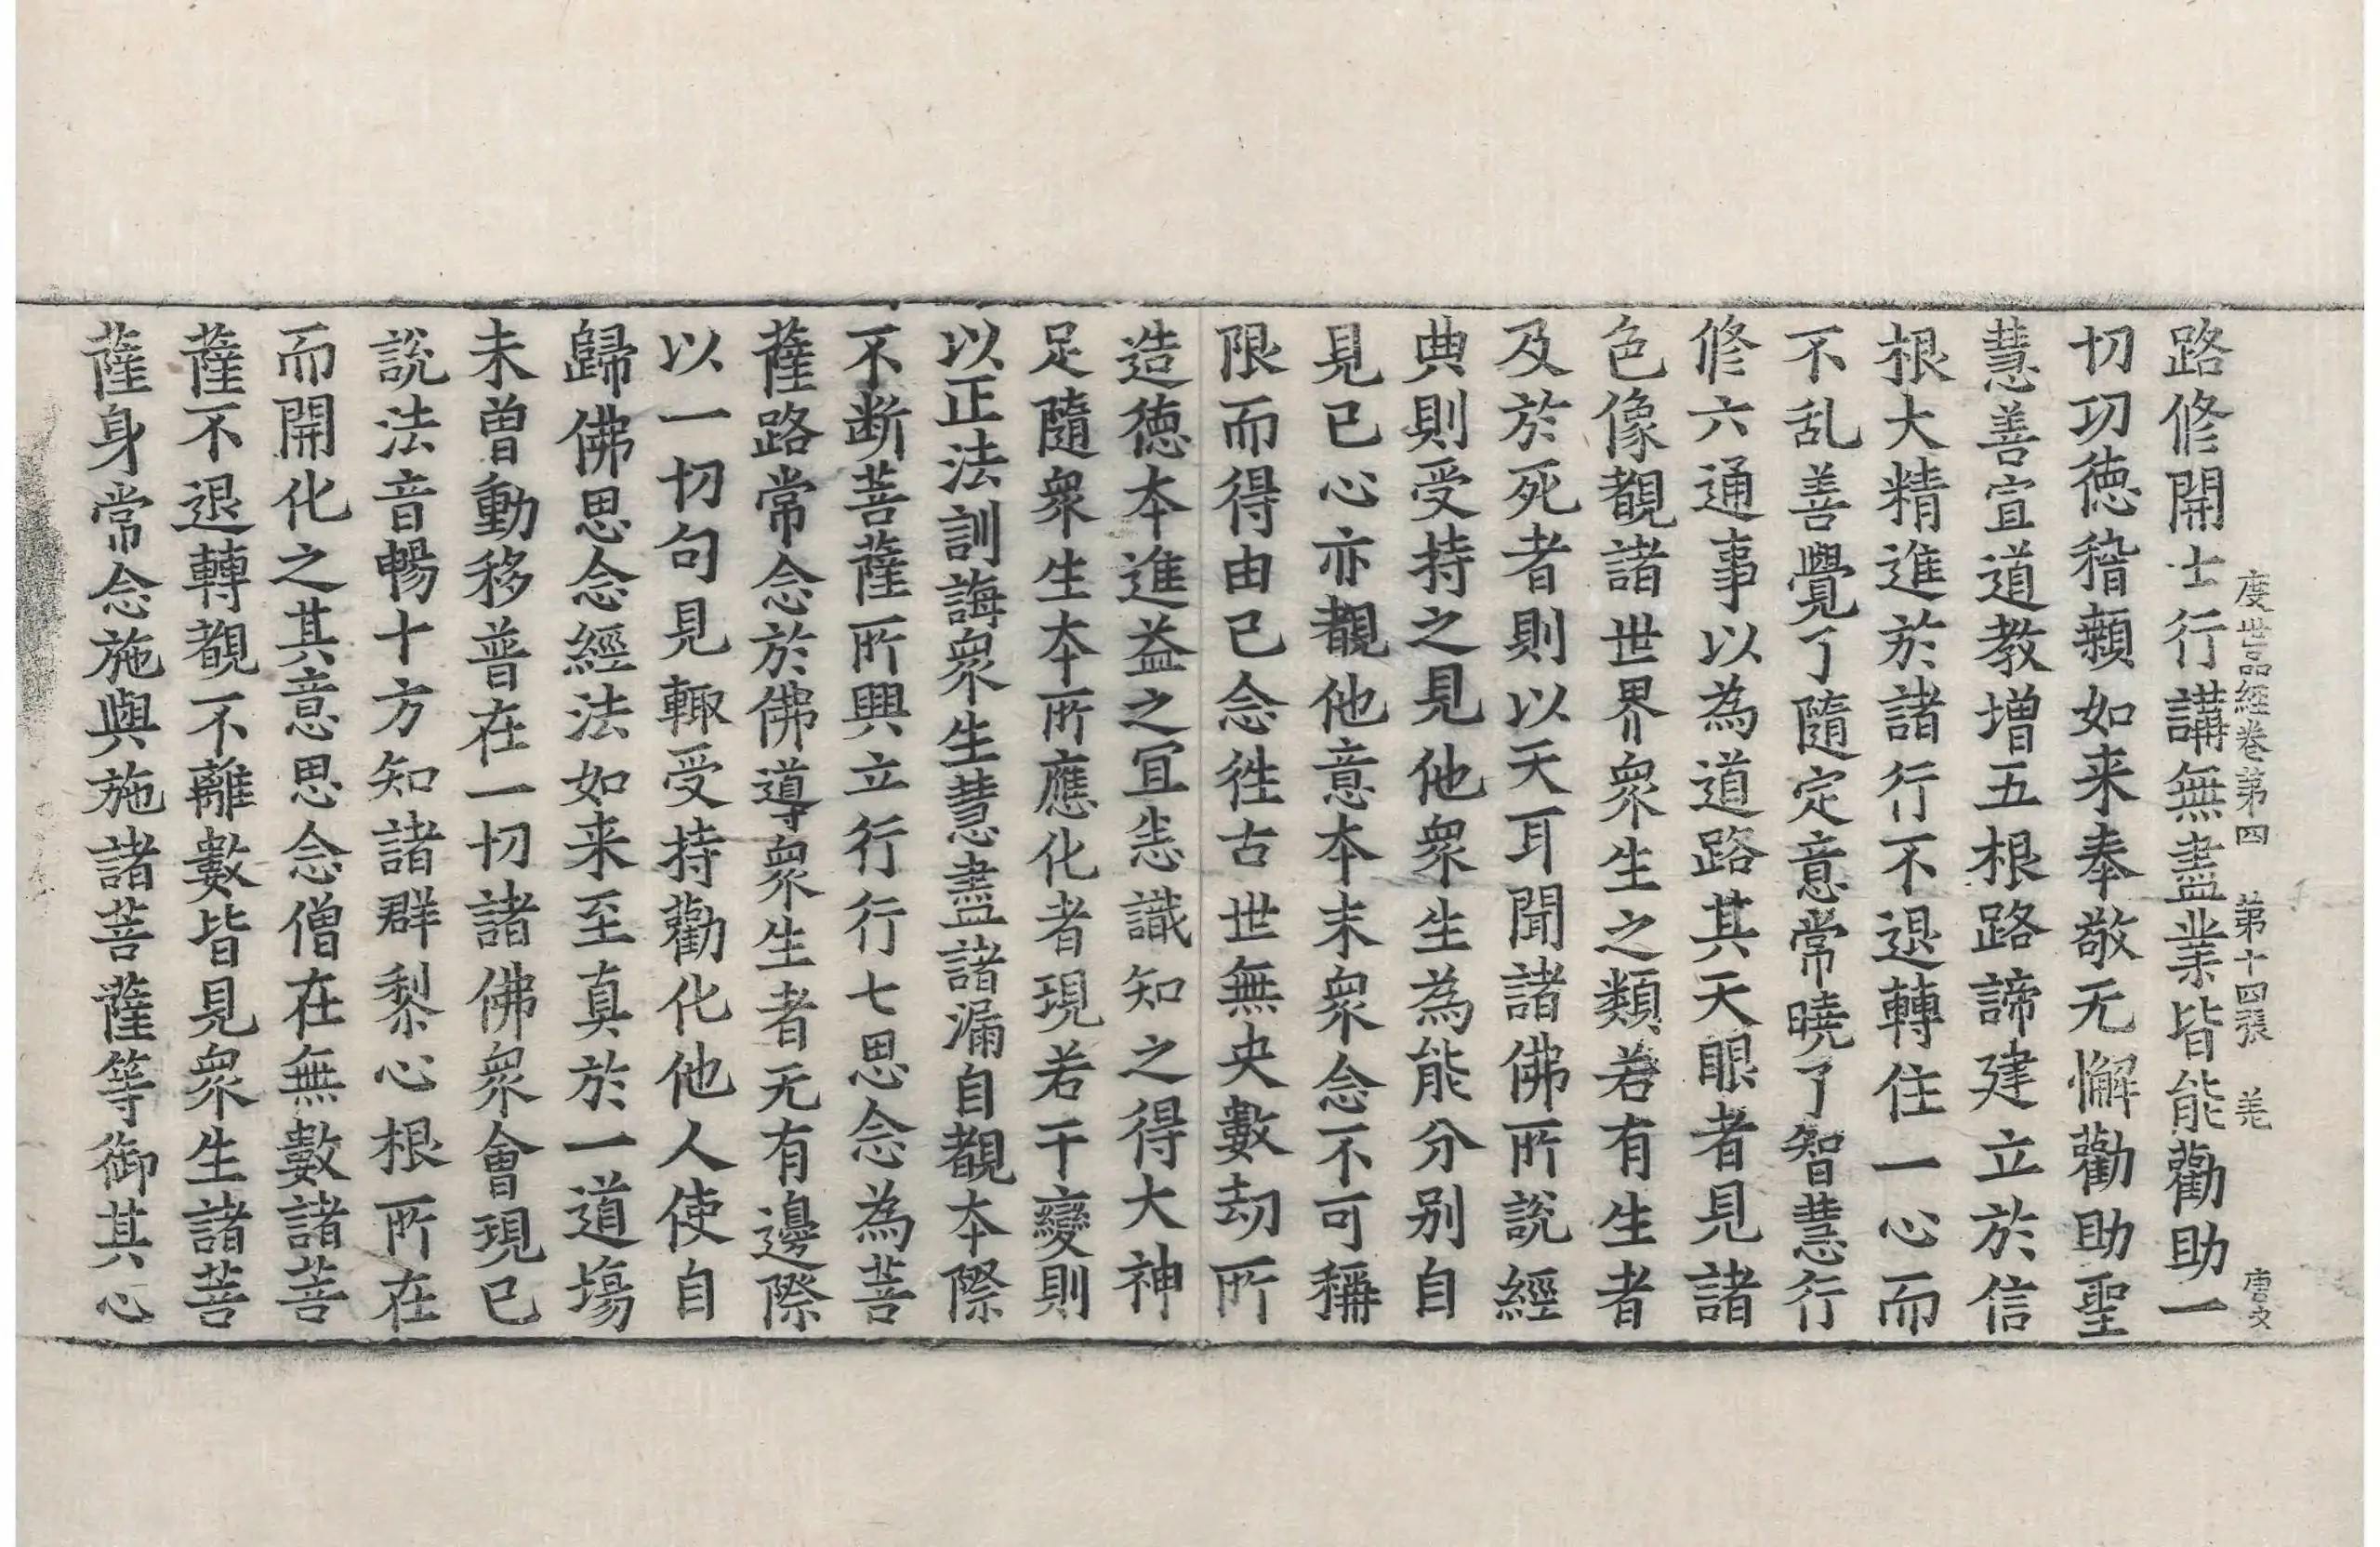 度世品經卷第四　第十四張　羌　唐文
路修開士行講無盡業皆能勸助一
切功德稽顙如来奉敬无懈勸助聖
慧善宣道教增五根路諦建立於信
根大精進於諸行不退轉住一心而
不乱善覺了隨定意常曉了智慧行
修六通事以為道路其天眼者見諸
色像覩諸世界衆生之類若有生者
及於死者則以天耳聞諸佛所說經
典則受持之見他衆生為能分別自
見已心亦覩他意本末衆念不可稱
限而得由已念徃古世無央數劫所
造德本進益之冝恙識知之得大神
足隨衆生本所應化者現若干變則
以正法訓誨衆生慧盡諸漏自覩本際
不断菩薩所興立行行七思念為菩
薩路常念於佛導衆生者无有邊際
以一切句見輙受持勸化他人使自
歸佛思念經法如来至真於一道塲
未曽動移普在一切諸佛衆會現已
說法音暢十方知諸群黎心根所在
而開化之其意思念僧在無數諸菩
薩不退轉覩不離數皆見衆生諸菩
薩身常念施與施諸菩薩等御其心